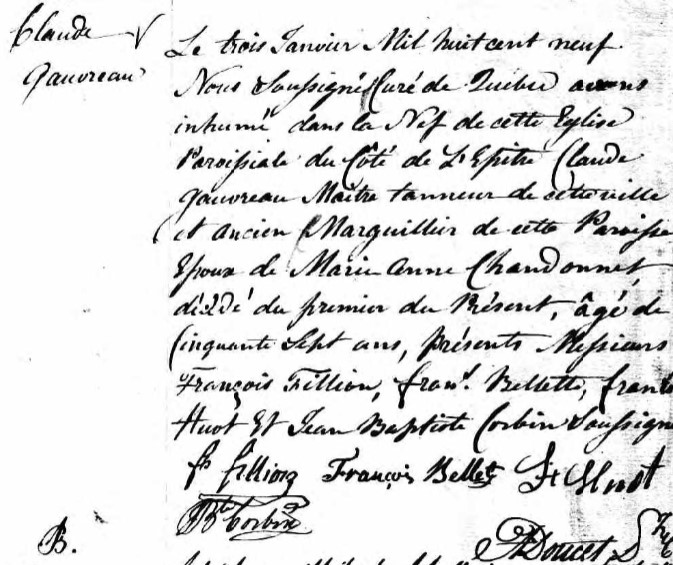 Claude
Gauvreau
Le trois Janvier Mil huit cent neuf
Nous Soussigné Curé de Quebec avons
inhumé dans la Nef de cette Eglise
Paroissiale du Côté de L'Epitre Claude
Gauvreau Maître tanneur de cette ville
et ancien Marguillier de cette Paroisse
Epoux de Marie Anne Chandonnet,
décédé du premier du Présent, âgé de
Cinquante Sept ans, présents Messieurs
François Fillion, Franç. Bellette, Franç
Huot Et Jean Baptiste Corbin Soussign
fs fillion François Bellet Fr Huot
Bte Corbin
Doucet
B.